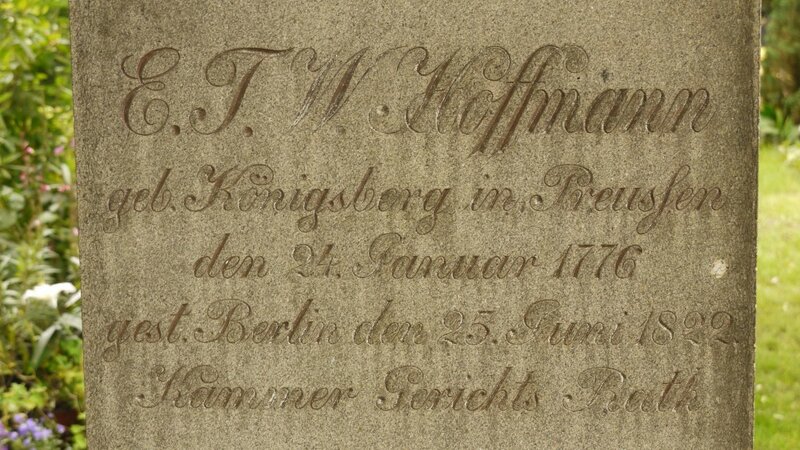 E. T. W. Hoffmann
geb. Königsberg in Preussen
den 24. Januar 1776
gest. Berlin den 25. Juni 1822.
Kammer Gerichts Rath